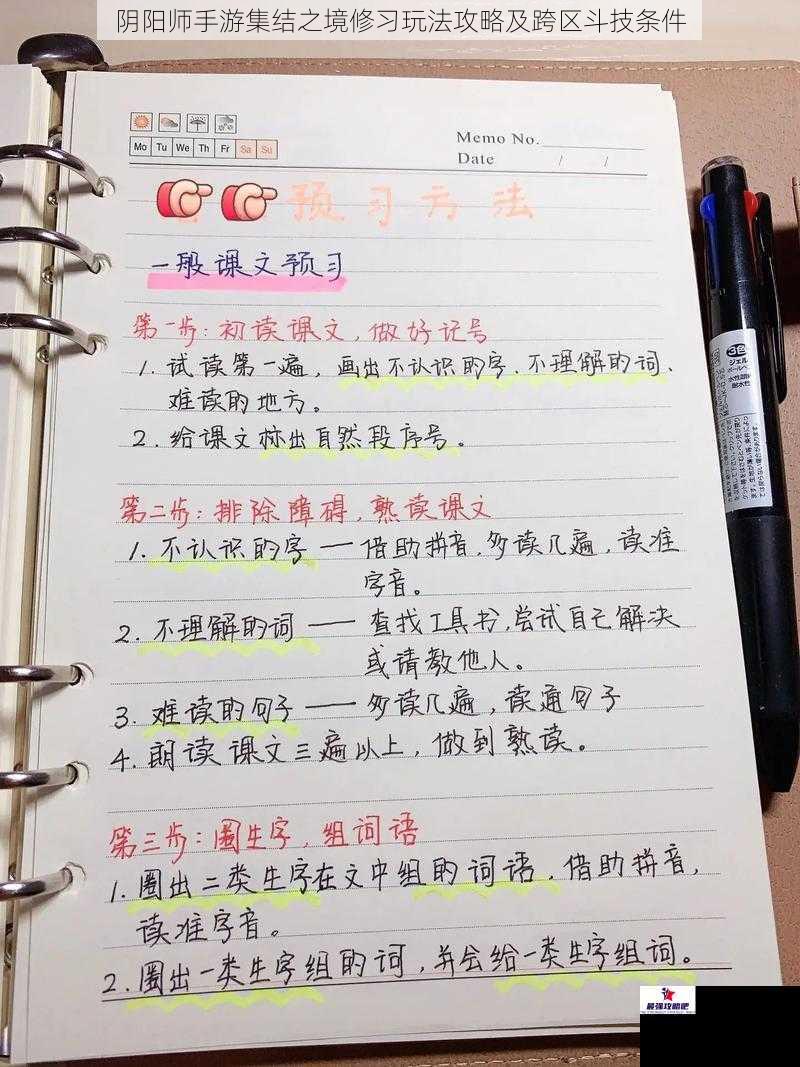 阴阳师手游集结之境修习玩法攻略及跨区斗技条件
Mo Tu We Th Fr Sa Su
Memo No.
Date / /
预习方法
一般课文预习
第一步：初读课文，做好记号
1. 试读第一遍，画出不认识的字、不理解的词、
难读的地方。
2. 给课文标出自然段序号。
第二步：排除障碍，熟读课文
1. 不认识的字 —— 借助拼音，多读几遍，读准
字音。
2. 不理解的词 —— 查找工具书，尝试自己解决
或请教他人。
3. 难读的句子 —— 多读几遍，读通句子
4. 朗读课文三遍以上，做到熟读。
第三步：圈生字，组词语
1. 圈出二类生字在文中组的词语，借助拼音，
读准字音。
2. 圈出一类生字组的词，并会给一类生字组词。
3色
ジェル
ボールペン
水性顔料
耐水性
最强攻略吧